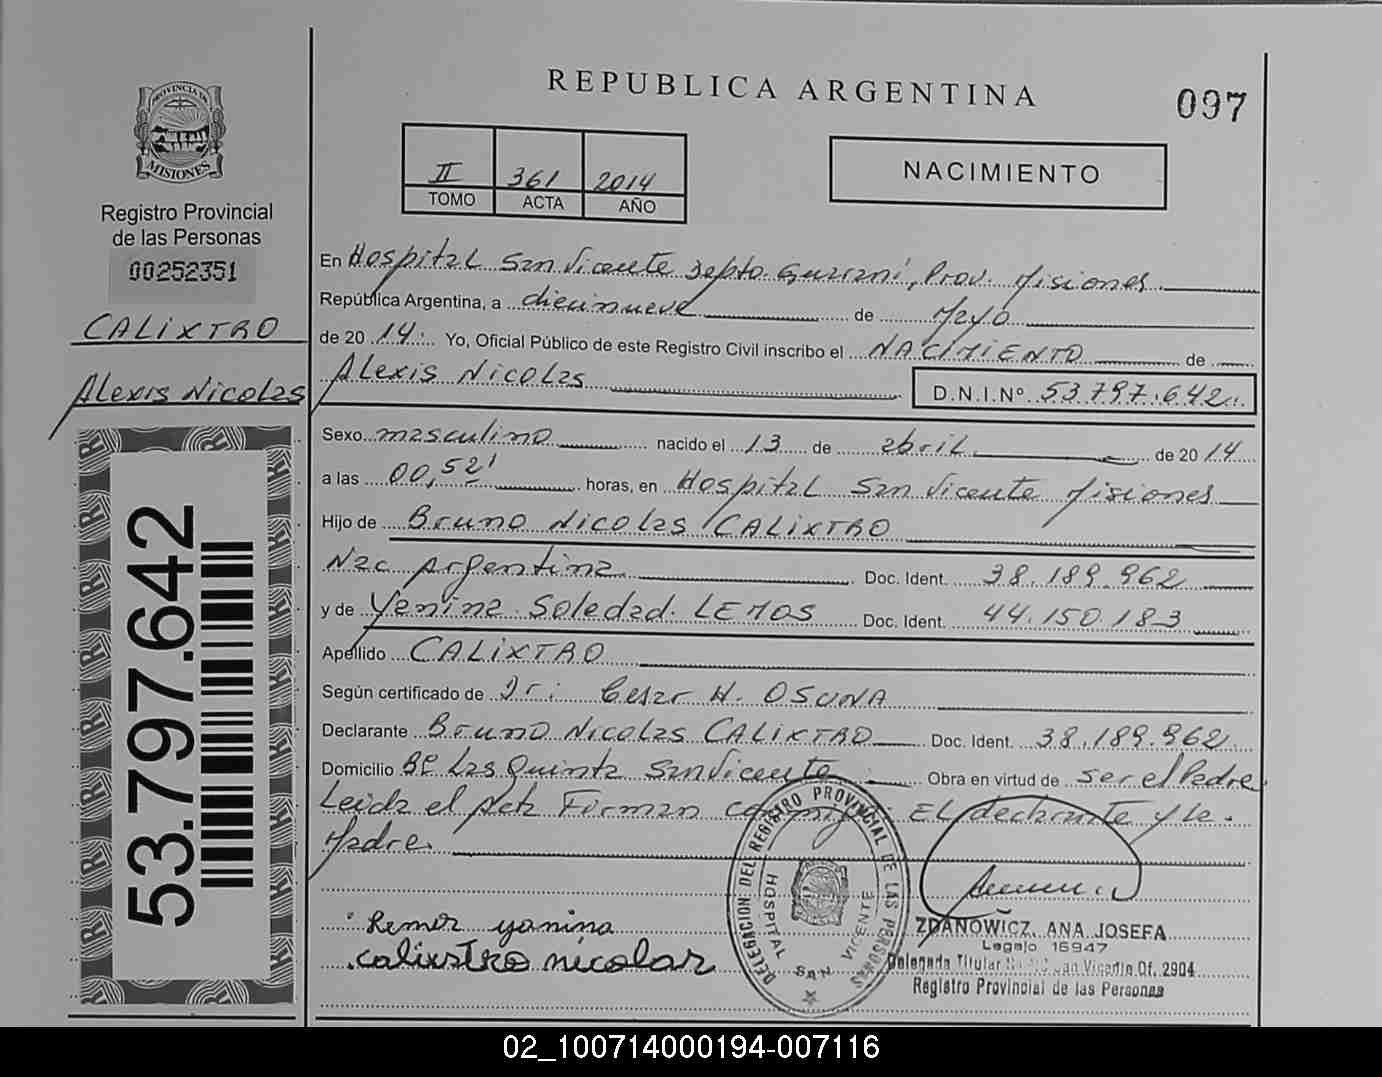 REPUBLICA ARGENTINA
097
PROVINCIA DE
MISIONES
Registro Provincial
de las Personas
00252351
CALIXTRO
Alexis Nicolas
53.797.642
II 361 2014
TOMO ACTA AÑO
NACIMIENTO
En Hospital San Vicente Depto. Guaraní, Prov. Misiones
República Argentina, a diecinueve de Mayo
de 2014. Yo, Oficial Público de este Registro Civil inscribo el NACIMIENTO de
Alexis Nicolas D.N.I.Nº 53.797.642
Sexo masculino nacido el 13 de abril de 2014
a las 00,52' horas, en Hospital San Vicente Misiones
Hijo de Bruno Nicolas CALIXTRO
Nac Argentina Doc. Ident. 38.189.962
y de Yanina Soledad LEMOS Doc. Ident. 44.150.183
Apellido CALIXTRO
Según certificado de Dr: Cesar H. OSUNA
Declarante Bruno Nicolas CALIXTRO Doc. Ident. 38.189.962
Domicilio Bº Las Quinta San Vicente Obra en virtud de ser el Padre
Leida el Acta Firman conmigo: EL declarante y la
Madre
Lemos yanina
calixtro nicolas
DELEGACION DEL REGISTRO PROVINCIAL DE LAS PERSONAS
HOSPITAL SAN VICENTE
ZDANOWICZ, ANA JOSEFA
Legajo 16947
Delegada Titular San Vicente Of. 2904
Registro Provincial de las Personas
02_100714000194-007116